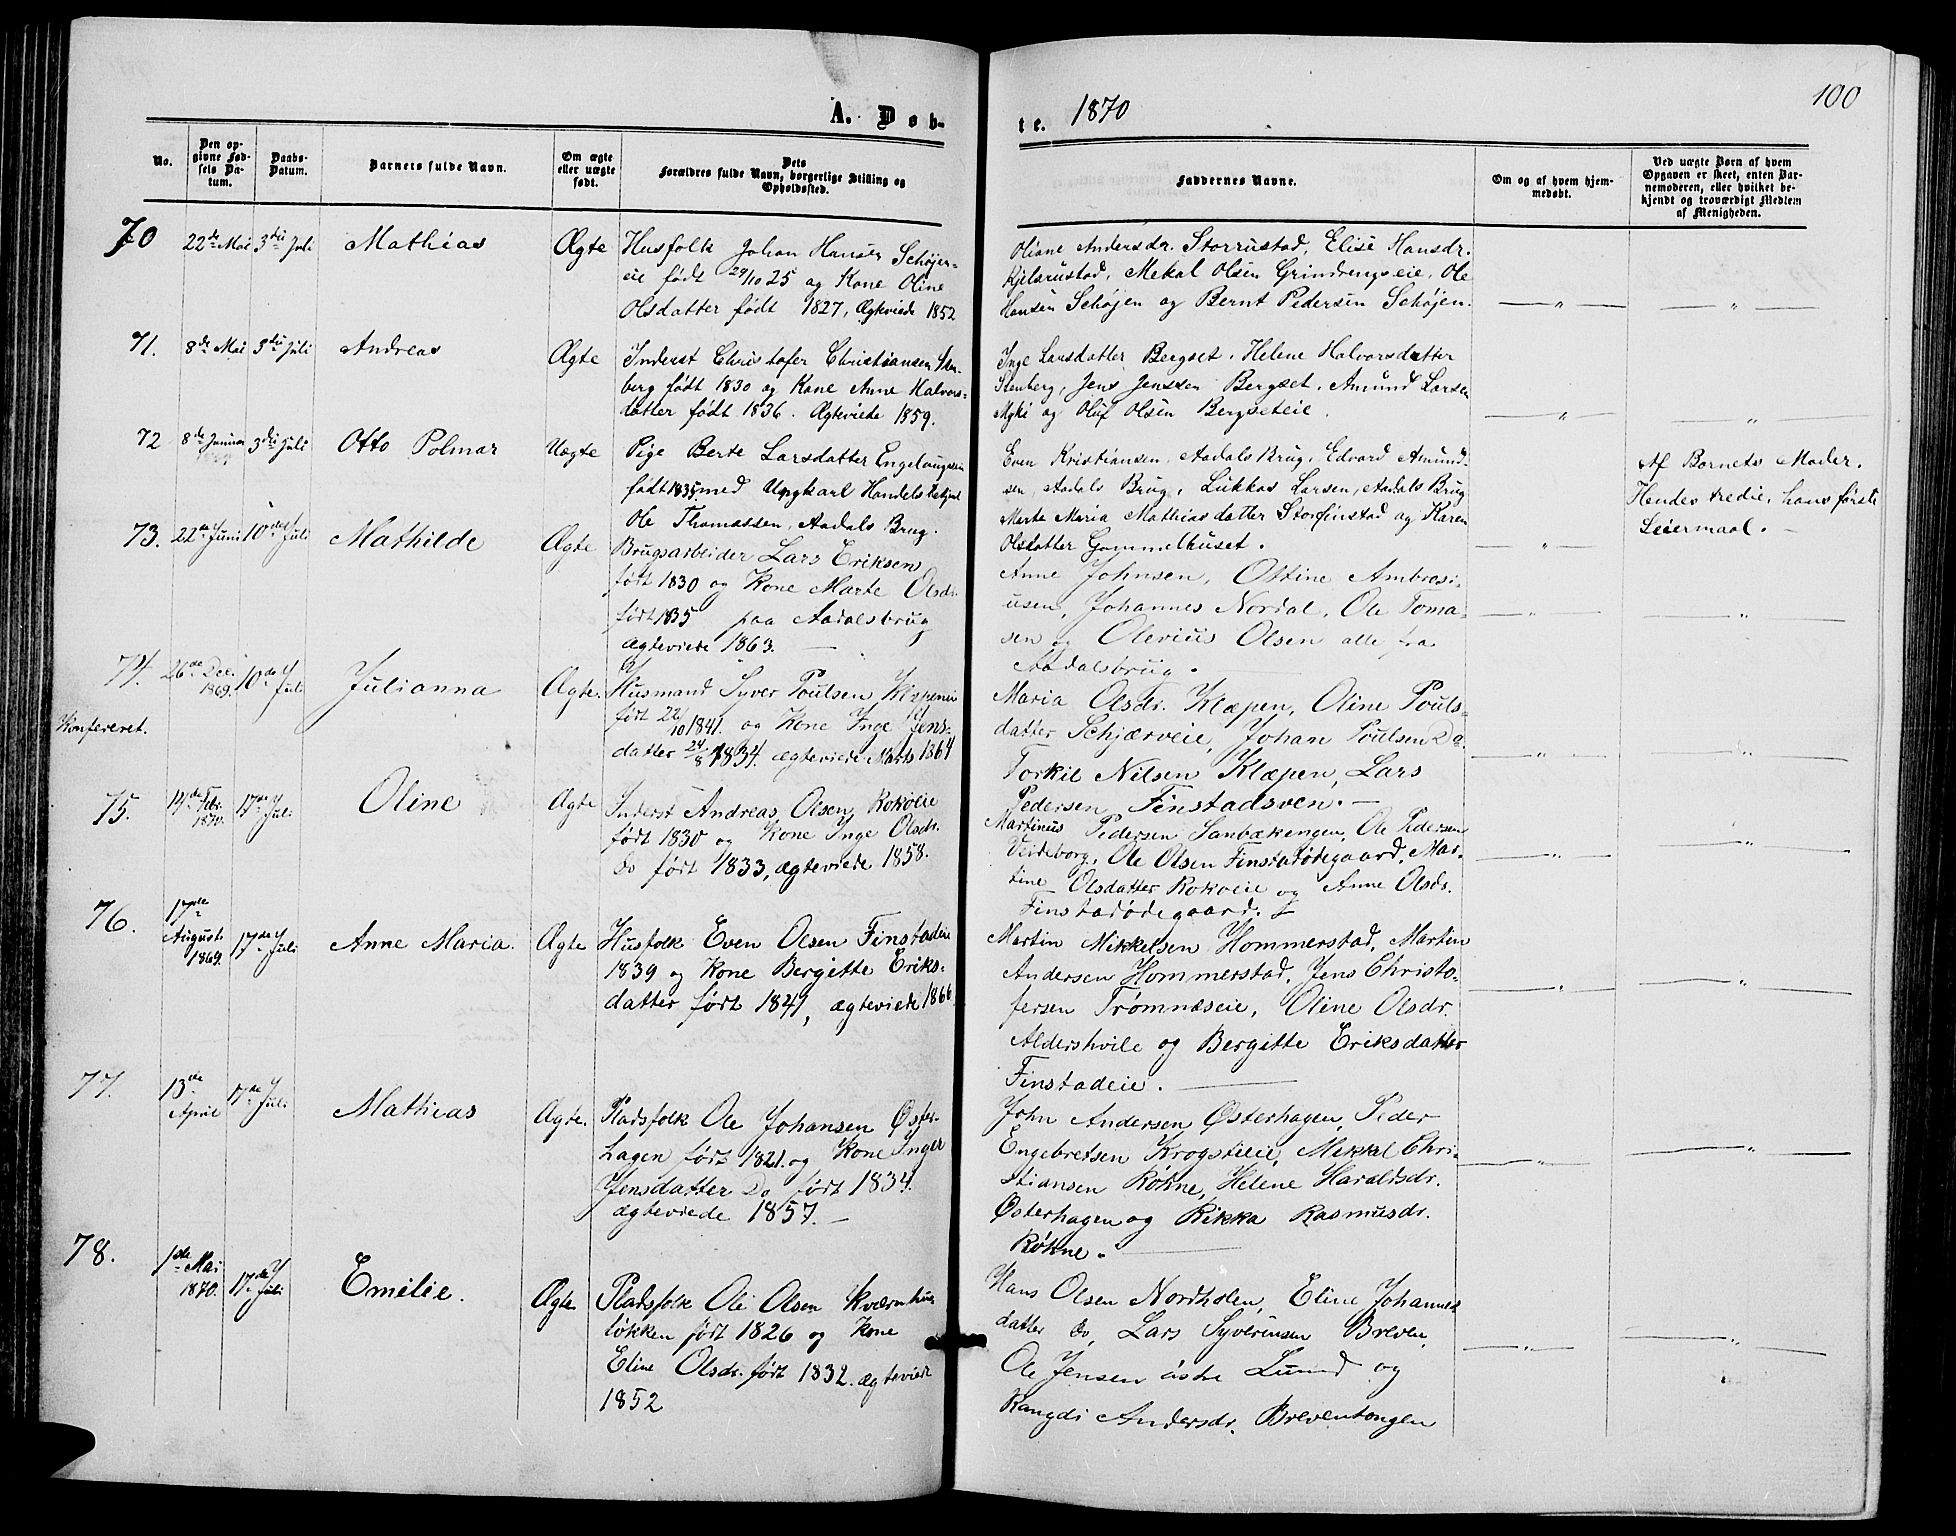 A. Døb-
te. 1870
100
No.
Den op-
givne Fød-
sels Da-
tum.
Daabs-
Datum.
Barnets fulde Navn.
Om ægte
eller uægte
født.
Dets
Forældres fulde Navn, borgerlige Stilling og
Opholdssted.
Faddernes Navne.
Om og af hvem hjem-
medøbt.
Ved uægte Børn af hvem
Opgaven er skeet, enten Bar-
nemoderen, eller hvilket be-
kjendt og troværdigt Medlem
af Menigheden.
70 22de Mai 3die Juli Mathias Ægte
Husfolk Johan Hansen Schøjen-
eie født 29/10 25 og Kone Oline
Olsdatter født 1827, Ægteviede 1852
Oliane Andersdr. Storrustad, Elise Hansdr.
Kjelsrustad, Mekal Olsen Grindengseie, Ole
Hansen Schøjen og Bernt Pedersen Schøjen.
71. 8de Mai 3die Juli Andreas Ægte
Inderst Christofer Christiansen Sten-
berg født 1830 og Kone Anne Halvors-
datter født 1836. Ægteviede 1859.
Inge Larsdatter Bergset, Helene Halvorsdatter
Stenberg, Jens Jenssen Bergset, Amund Larsen
Myki og Oluf Olsen Bergseteie.
72 8de Januar 3die Juli Otto Polmar Uægte
Pige Berte Larsdatter Engelaugsen
født 1835 med Ungkarl Handelsbetjent
Ole Thomassen, Aadals Brug.
Even Kristiansen, Aadals Brug, Edvard Amund-
sen, Aadals Brug, Lukkas Larsen, Aadals Brug
Marte Maria Mathiasdatter Storfinstad og Karen
Olsdatter Gammelhuset.
Af Barnets Moder.
Hendes tredie, hans første
Leiermaal.
73. 22de Juni 10de Juli Mathilde Ægte
Brugsarbeider Lars Eriksen
født 1830 og Kone Marte Olsdr.
født 1835 paa Aadalsbrug
ægteviede 1863.
Anne Johnsen, Ottine Ambrosi-
usen, Johannes Nordal, Ole Toma-
sen og Olerius Olsen alle fra
Aadalsbrug.
74. 26de Dec. 1869. 10de Juli Julianna Ægte.
Konfereret.
Husmand Syver Poulsen Klæpeneie
født 22/10 1841. og Kone Inge Jens-
datter 24/8 1834. ægteviede Marts 1864
Maria Olsdr. Klæpen, Oline Pouls-
datter Schjærveie, Johan Poulsen Do.
Torkil Nilsen Klæpen, Lars
Pedersen Finstadsven.
75. 14de Febr. 1870. 17de Juli Oline Ægte
Inderst Andreas Olsen Rokoeie
født 1830 og Kone Inge Olsdr.
Do født 1833, ægteviede 1858.
Martinus Pedersen Sanbækengen, Ole Pedersen
Veideborg, Ole Olsen Finstadødegaard, Mar-
tine Olsdatter Rokoeie og Anne Olsdr.
Finstadødegaard.
76. 17de August 1869. 17de Juli Anne Maria. Ægte
Husfolk Even Olsen Finstadeie
1839 og Kone Bergitte Eriks-
datter født 1841, ægteviede 1866
Martin Mikkelsen Hommerstad, Martin
Andersen Hommerstad, Jens Christo-
fersen Trømnæseie, Oline Olsdr.
Aldershvile og Bergitte Eriksdatter
Finstadeie.
77. 13de April 17de Juli Mathias Ægte.
Pladsfolk Ole Johansen Øster-
hagen født 1821. og Kone Inger
Jensdatter Do født 1834.
ægteviede 1857.
John Andersen Østerhagen, Peder
Engebretsen Krogsteie, Mikkel Chri-
stiansen Røhne, Helene Haraldsdr.
Østerhagen og Rikka Rasmusdr.
Røhne.
78. 1ste Mai 1870. 17de Juli Emilie. Ægte
Pladsfolk Ole Olsen Kværnhus
løkken født 1826 og Kone
Eline Olsdr. født 1832. ægteviede
1852
Hans Olsen Nordholen, Eline Johannes
datter Do, Lars Syverinsen Breven,
Ole Jensen østre Lund og
Rangdi Andersdr. Breventongen